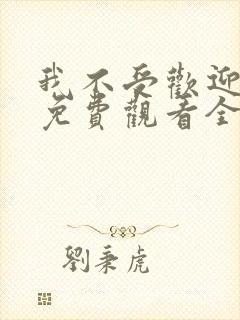 我不受歡迎
免費觀看全
劉秉虎